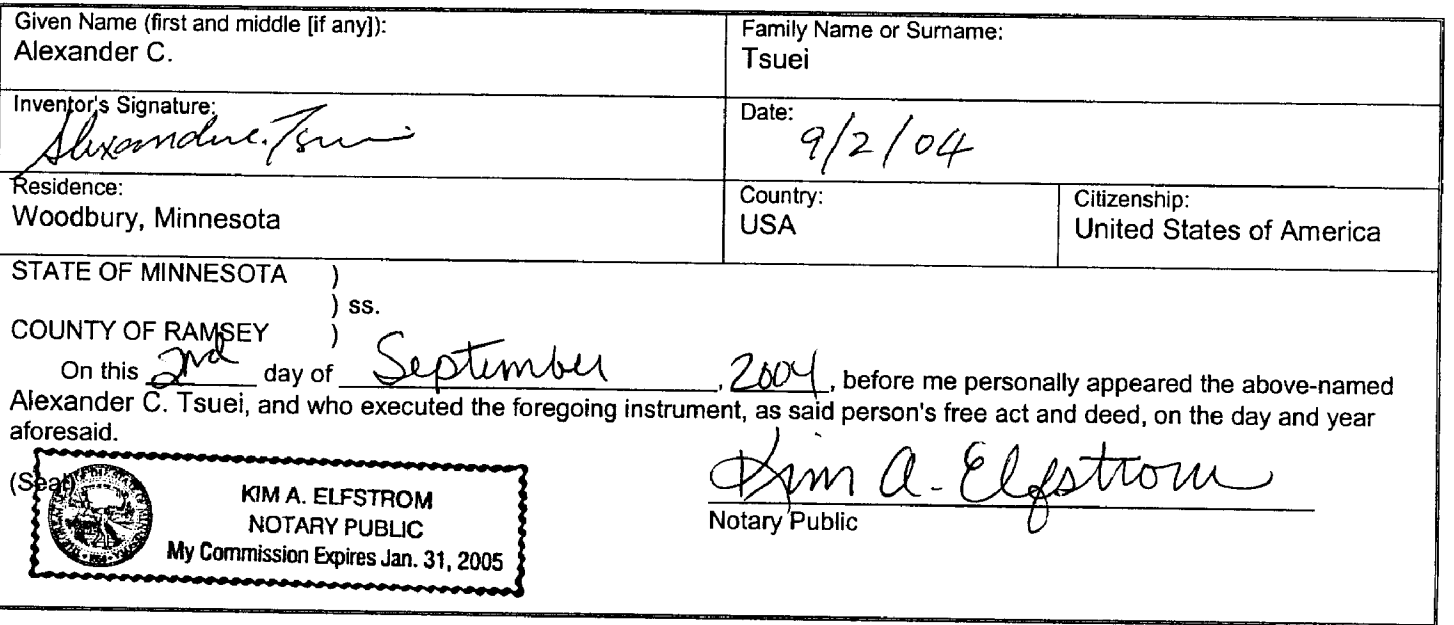 Given Name (first and middle [if any]):
Alexander C.
Family Name or Surname:
Tsuei
Inventor's Signature:
Alexander C. Tsuei
Date:
9/2/04
Residence:
Woodbury, Minnesota
Country:
USA
Citizenship:
United States of America
STATE OF MINNESOTA )
) ss.
COUNTY OF RAMSEY )
On this 2nd day of September, 2004, before me personally appeared the above-named
Alexander C. Tsuei, and who executed the foregoing instrument, as said person's free act and deed, on the day and year
aforesaid.
(Seal)
KIM A. ELFSTROM
NOTARY PUBLIC
My Commission Expires Jan. 31, 2005
Kim A. Elfstrom
Notary Public